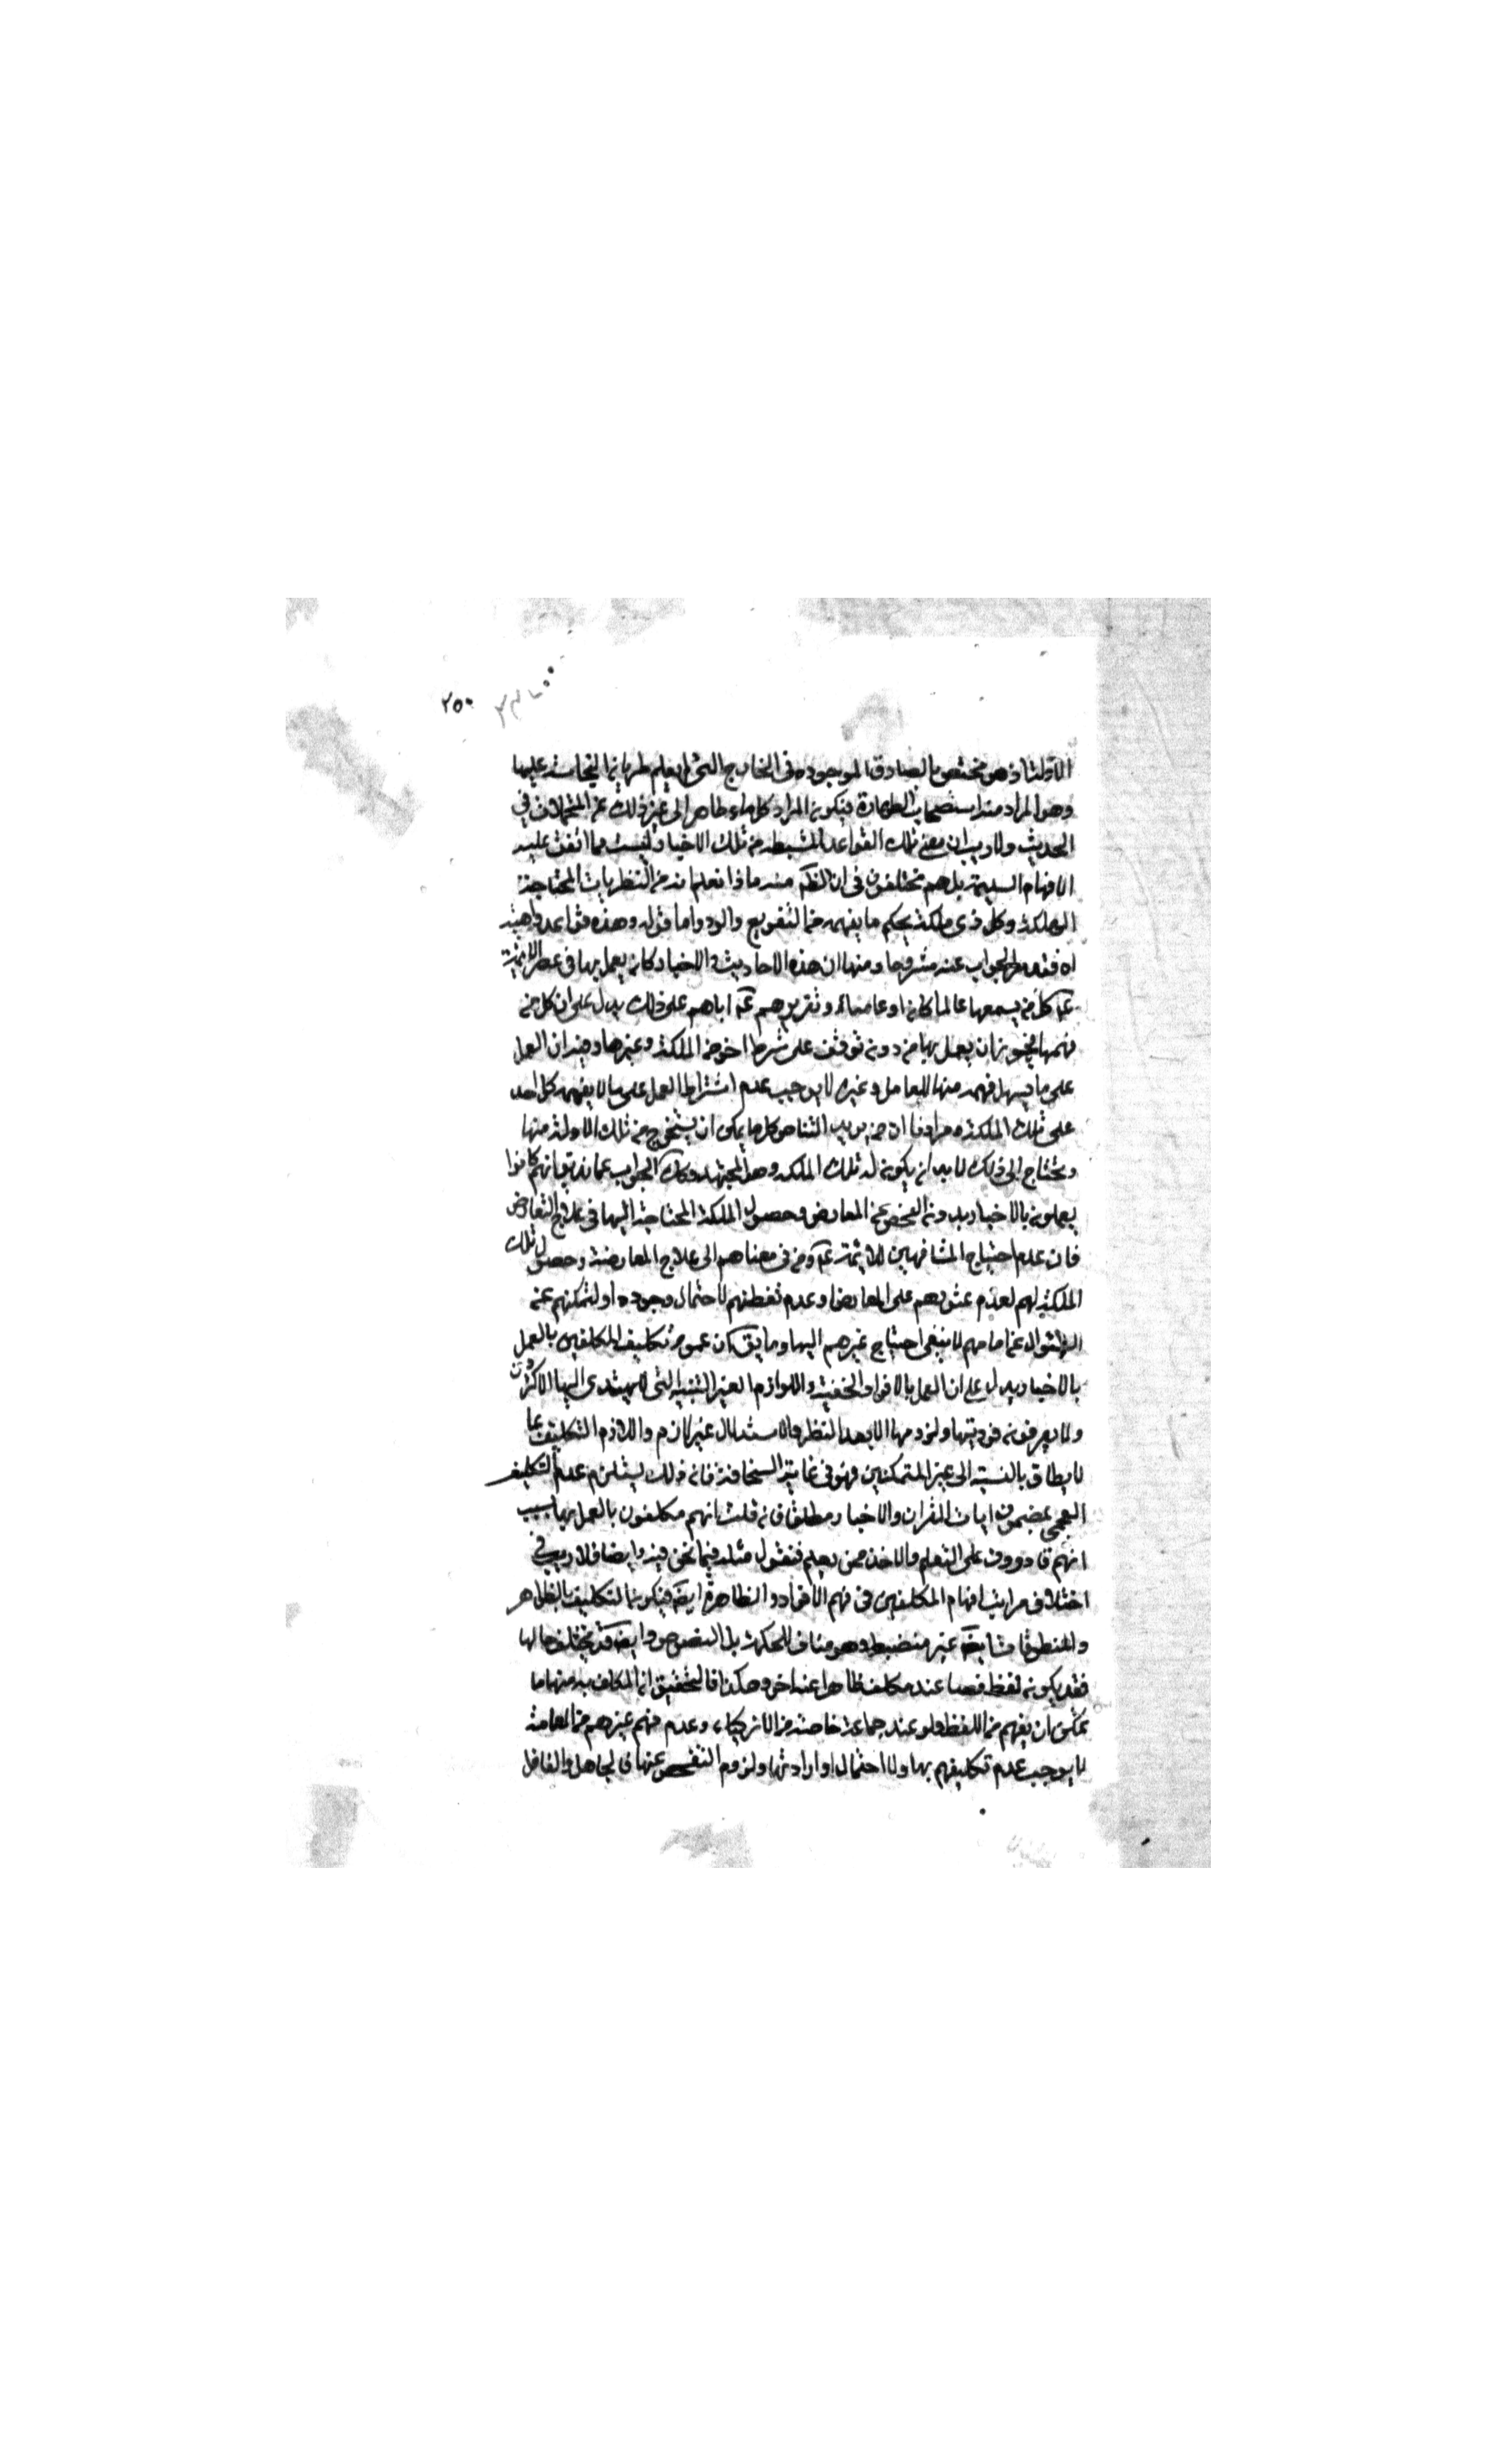 ٢٥٠
الاولتا ذهو مختص بالصادق الموجود فى الخارج التى لم يعلم طريان النجاسة عليها
وهو المراد منه استصحاب الطهارة فيكون المراد كل ماء طاهر الى غير ذلك من المحتملات فى
الحديث ولا ريب ان معنى تلك القواعد المستنبطة من تلك الاخبار ليست مما اتفق عليه
الافهام السليمة بل هم مختلفون فى ان الحكم منه ماذا فعلم انه من النظريات المحتاجة
الى ملكة وكل ذى ملكة يحكم ما يفهمه من التفريع والرد واما قوله وهذه قواعد واهية
اه فقد ظهر الجواب عنه مشروحا ومنها ان هذه الاحاديث والاخبار كان يعمل بها فى عصر الائمة
عم كل من يسمعها عالما كان او عاميا وتقريرهم عم اياهم على ذلك يدل على ان كل من
فهمها يجوز ان يعمل بها من دون توقف على شرط اخر من الملكة وغيرها وفيه ان العمل
على ما يسهل فهمه منها للعامل وغيره لا يوجب عدم اشتراط العمل على ما لا يفهمه كل احد
على تلك الملكة ومرادنا ان من يريد اقتناص كل ما يمكن ان يستخرج من تلك الادلة منها
ويحتاج الى ذلك لا بد ان يكون له تلك الملكة وهو المجتهد وكذا الجواب عما يقال انهم كانوا
يعملون بالاخبار بدون الفحص عن المعارض وحصول الملكة المحتاجة اليها فى علاج التعارض
فان عدم احتياج المشافهين للائمة عم ومن فى معناهم الى علاج المعارضة وحصول تلك
الملكة لهم لعدم عثورهم على المعارض او عدم تفطنهم لاحتمال وجوده او لتمكنهم عن
السؤال عن امامهم لا ينفى احتياج غيرهم اليها وما يق ان عموم تكليف المكلفين بالعمل
بالاخبار يدل على ان العمل بالافراد الخفية واللوازم الغير البينة التى لا يهتدى اليها الاكثرون
ولا يعرفون فرديتها ولزومها الا بعد النظر والاستدلال غير لازم والا لازم التكليف بما
لا يطاق بالنسبة الى غير المتمكنين فهو فى غاية السخافة فان ذلك يستلزم عدم التكليف
العجمى بمضمون ايات القران والاخبار مطلقا فان قلت انهم مكلفون بالعمل بها بسبب
انهم قادرون على التعلم والاخذ ممن يعلم فنقول مثله فيما نحن فيه وايضا فلا ريب فى
اختلاف مراتب افهام المكلفين فى فهم الافراد الظاهرة ايضا فيكون التكليف بالظاهر
والمنطوقات ايضا غير منضبط وهو مناف للحكمة بل النصوص وايضا قد يختلف حالها
فقد يكون لفظ نصا عند مكلف ظاهرا عند اخر وهكذا فالتحقيق ان المكلف به منها ما
يمكن ان يفهم من اللفظ ولو عند جماعة خاصة من الازكياء وعدم فهم غيرهم من العامة
لا يوجب عدم تكليفهم بها ولا احتمال او ارادتها ولزوم التفحص عنها فالجاهل والغافل